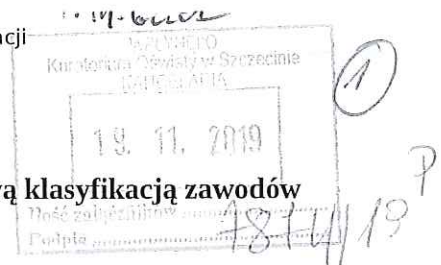 acji
WPŁYNĘŁO
Kuratorium Oświaty w Szczecinie
KANCELARIA
1
19. 11. 2019
P
ą klasyfikacją zawodów
Ilość załączników
Podpis